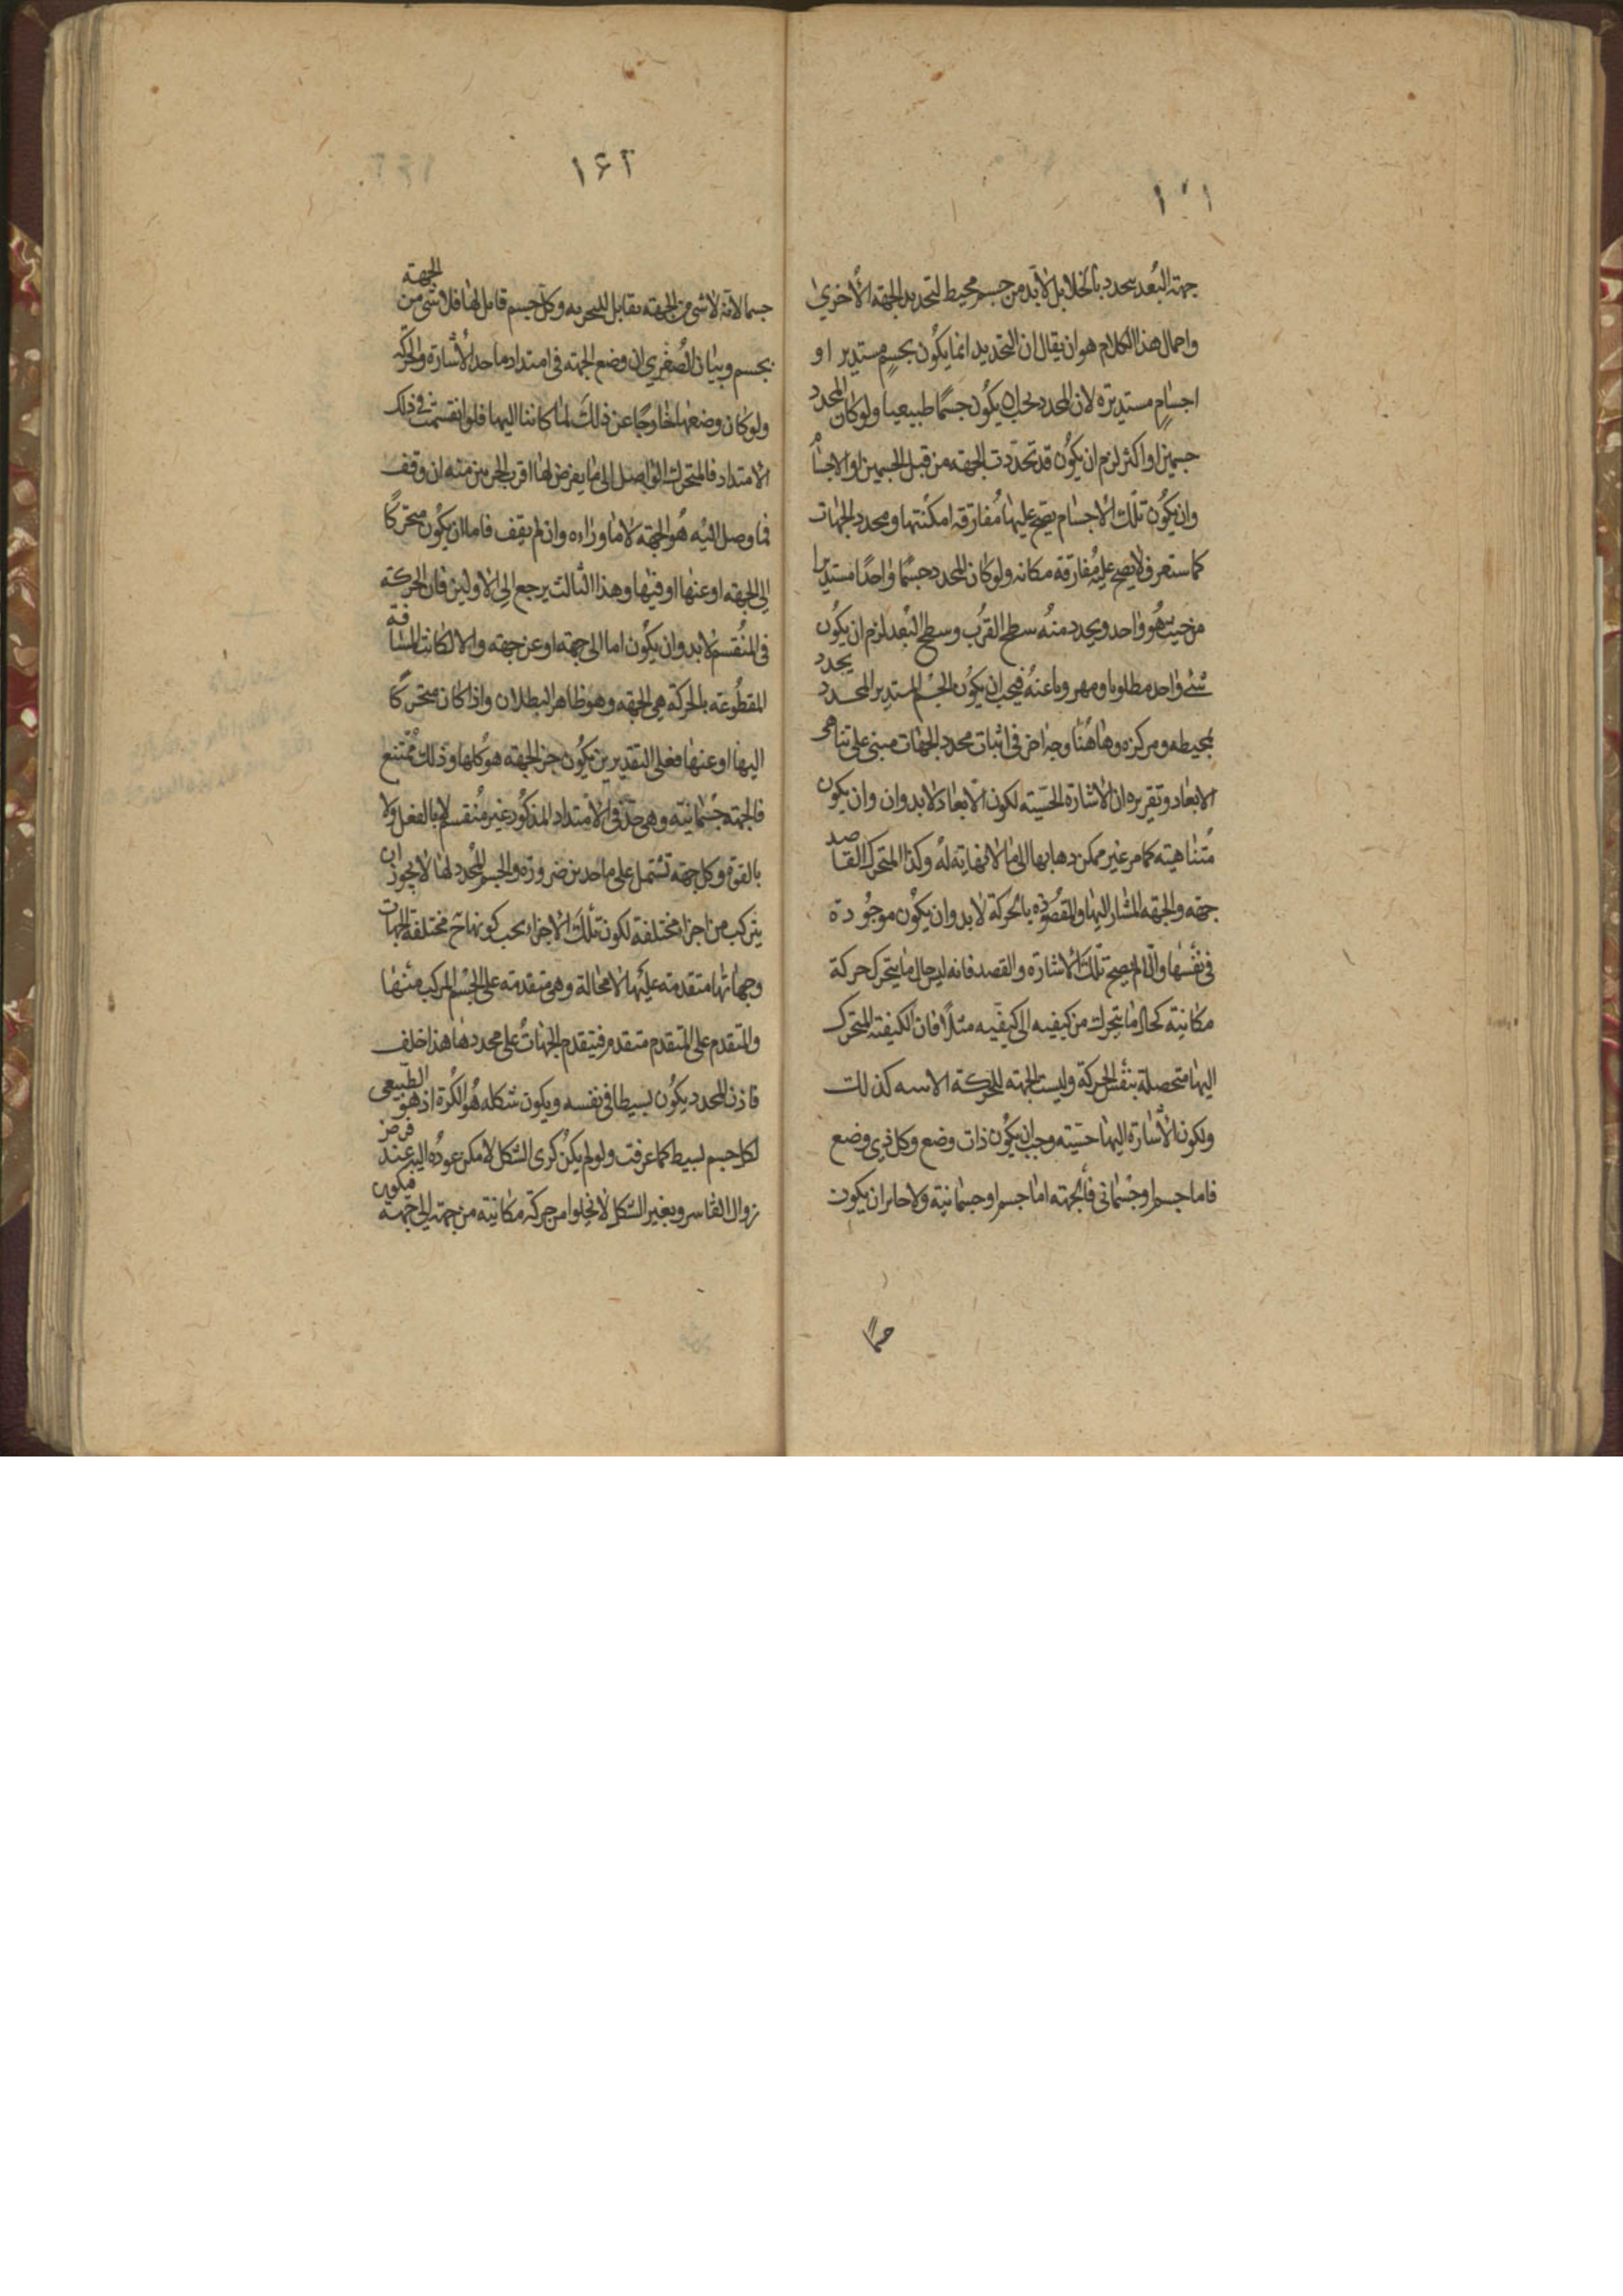 ١٦١
جهة البُعد يتحدد بالخلا بل لابد من جسم محيط لتحديد الجهة الأخرى
واجمال هذا الكلام هو ان يقال ان التحديد انما يكون بجسم مستدير او
اجسام مستديرة لان المحدد يجب ان يكون جسمًا طبيعيا ولو كان المحدد
جسمين او اكثر لزم ان يكون قد تحددت الجهة من قبل الجسمين او الاجسام
وان يكون تلك الاجسام يصح عليها مُفارقة امكنتها ومحدد الجهات
كما ستعرف لا يصح عليه مُفارقة مكانه ولو كان المحدد جسمًا واحدًا مستديرا
من حيث هُو واحد ويحدد منهُ سطح القرب وسطح البُعد لزم ان يكون
شئ واحد مطلوبا ومهروبا عنهُ فيجب ان يكون الجسم المستدير المحدد يحدد
بمحيطه ومركزه وهاهُنا وجه اخر في اثبات محدد الجهات مبنى على تناهي
الابعاد وتقريره ان الاشارة الحسية لكون الابعاد لابد وان وان يكون
مُتناهية كما مر غير ممكن ذهابها الى ما لا نهاية لهُ وكذا المتحرك القاصد
جهة والجهة المشار اليها والمقصُودة بالحركة لابد وان يكون موجُودة
في نفسها والّا لم يصح تلك الاشارة والقصد فانه ليس حال ما يتحرك حركة
مكانية كحال ما يتحرك من كيفيه الى كيفيه مثلًا فان الكيفية المتحرك
اليها متحصلة بنفس الحركة وليست الجهة للحركة الاينيه كذلك
ولكون الاشارة اليها حسّية وجب ان يكُون ذات وضع وكل ذي وضع
فاما جسم او جُسماني فالجهة اما جسم او جسمانية ولا جايز ان يكون
جسمًا
١٦٢
جسما لانه لا شئ من الجهة بقابل للتجزيه وكل جسم قابل لها فلا شئ من الجهة
بجسم وبيان الصُغرى ان وضع الجهة في امتداد ماخذ الاشارة والحركة
ولو كان وضعها خارجًا عن ذلك لما كانتا اليها فلو انقسمت في ذلك
الامتداد فالمتحرك الواصل الى ما يفرض لها اقرب الجزءين منه ان وقف
فما وصل اليْه هُو الجهة لا ما وراءه وان لم يقف فاما ان يكُون متحركًا
إلى الجهة او عنها او فيها وهذا الثالث يرجع الى الاولين فان الحركة
في المُنقسم لابد وان يكُون اما الى جهة او عن جهة والا لكانت المسافة
المقطُوعة بالحركة هي الجهة وهو ظاهر البطلان واذا كان متحركًا
اليها او عنها فعلى التقديرين يكُون جزء الجهة هو كلها وذلك مُمتنع
فالجهة جُسمانية وهي حدٌّ في الامتداد المذكُور غير مُنقسم لا بالفعل ولا
بالقوة وكل جهة تشتمل على ماخذين ضرورة والجسم المُحدد لها لا يجوز ان
يتركب من اجزاء مختلفة لكون تلك الاجزاء يجب كونها في مختلفة الجهات
وجهاتها متقدمة عليها لا محالة وهي متقدمة على الجسم المركب منها
والمتقدم على المتقدم متقدم فيتقدم الجهاتُ على محددها هذا خلف
فاذن المحدد يكُون بسيطا في نفسه ويكون شكله هُو الكُرة اذ هو الطبيعي
لكل جسم بسيط كما عرفت ولو لم يكن كُرى الشكل لامكن عودُه اليه عند فرض
زوال القاسر وتغير الشكل لا يخلوا من حركة مكانية من جهة إلى جهة فيكون